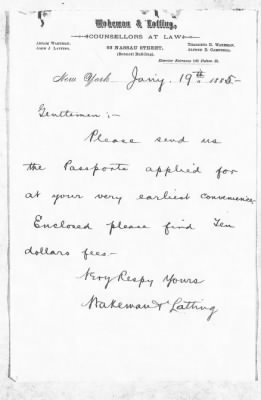 Wakeman & Latting,
COUNSELLORS AT LAW
ABRAM WAKEMAN,
JOHN J. LATTING,
93 NASSAU STREET,
(Bennett Building),
THADDEUS B. WAKEMAN,
ALFRED R. CAMPBELL,
Elevator Entrance 139 Fulton St.
New York Jany. 19th 1885
Gentlemen :-
Please send us
the Passports applied for
at your very earliest convenience.
Enclosed please find Ten
dollars fees-
Very Respy Yours
Wakeman & Latting